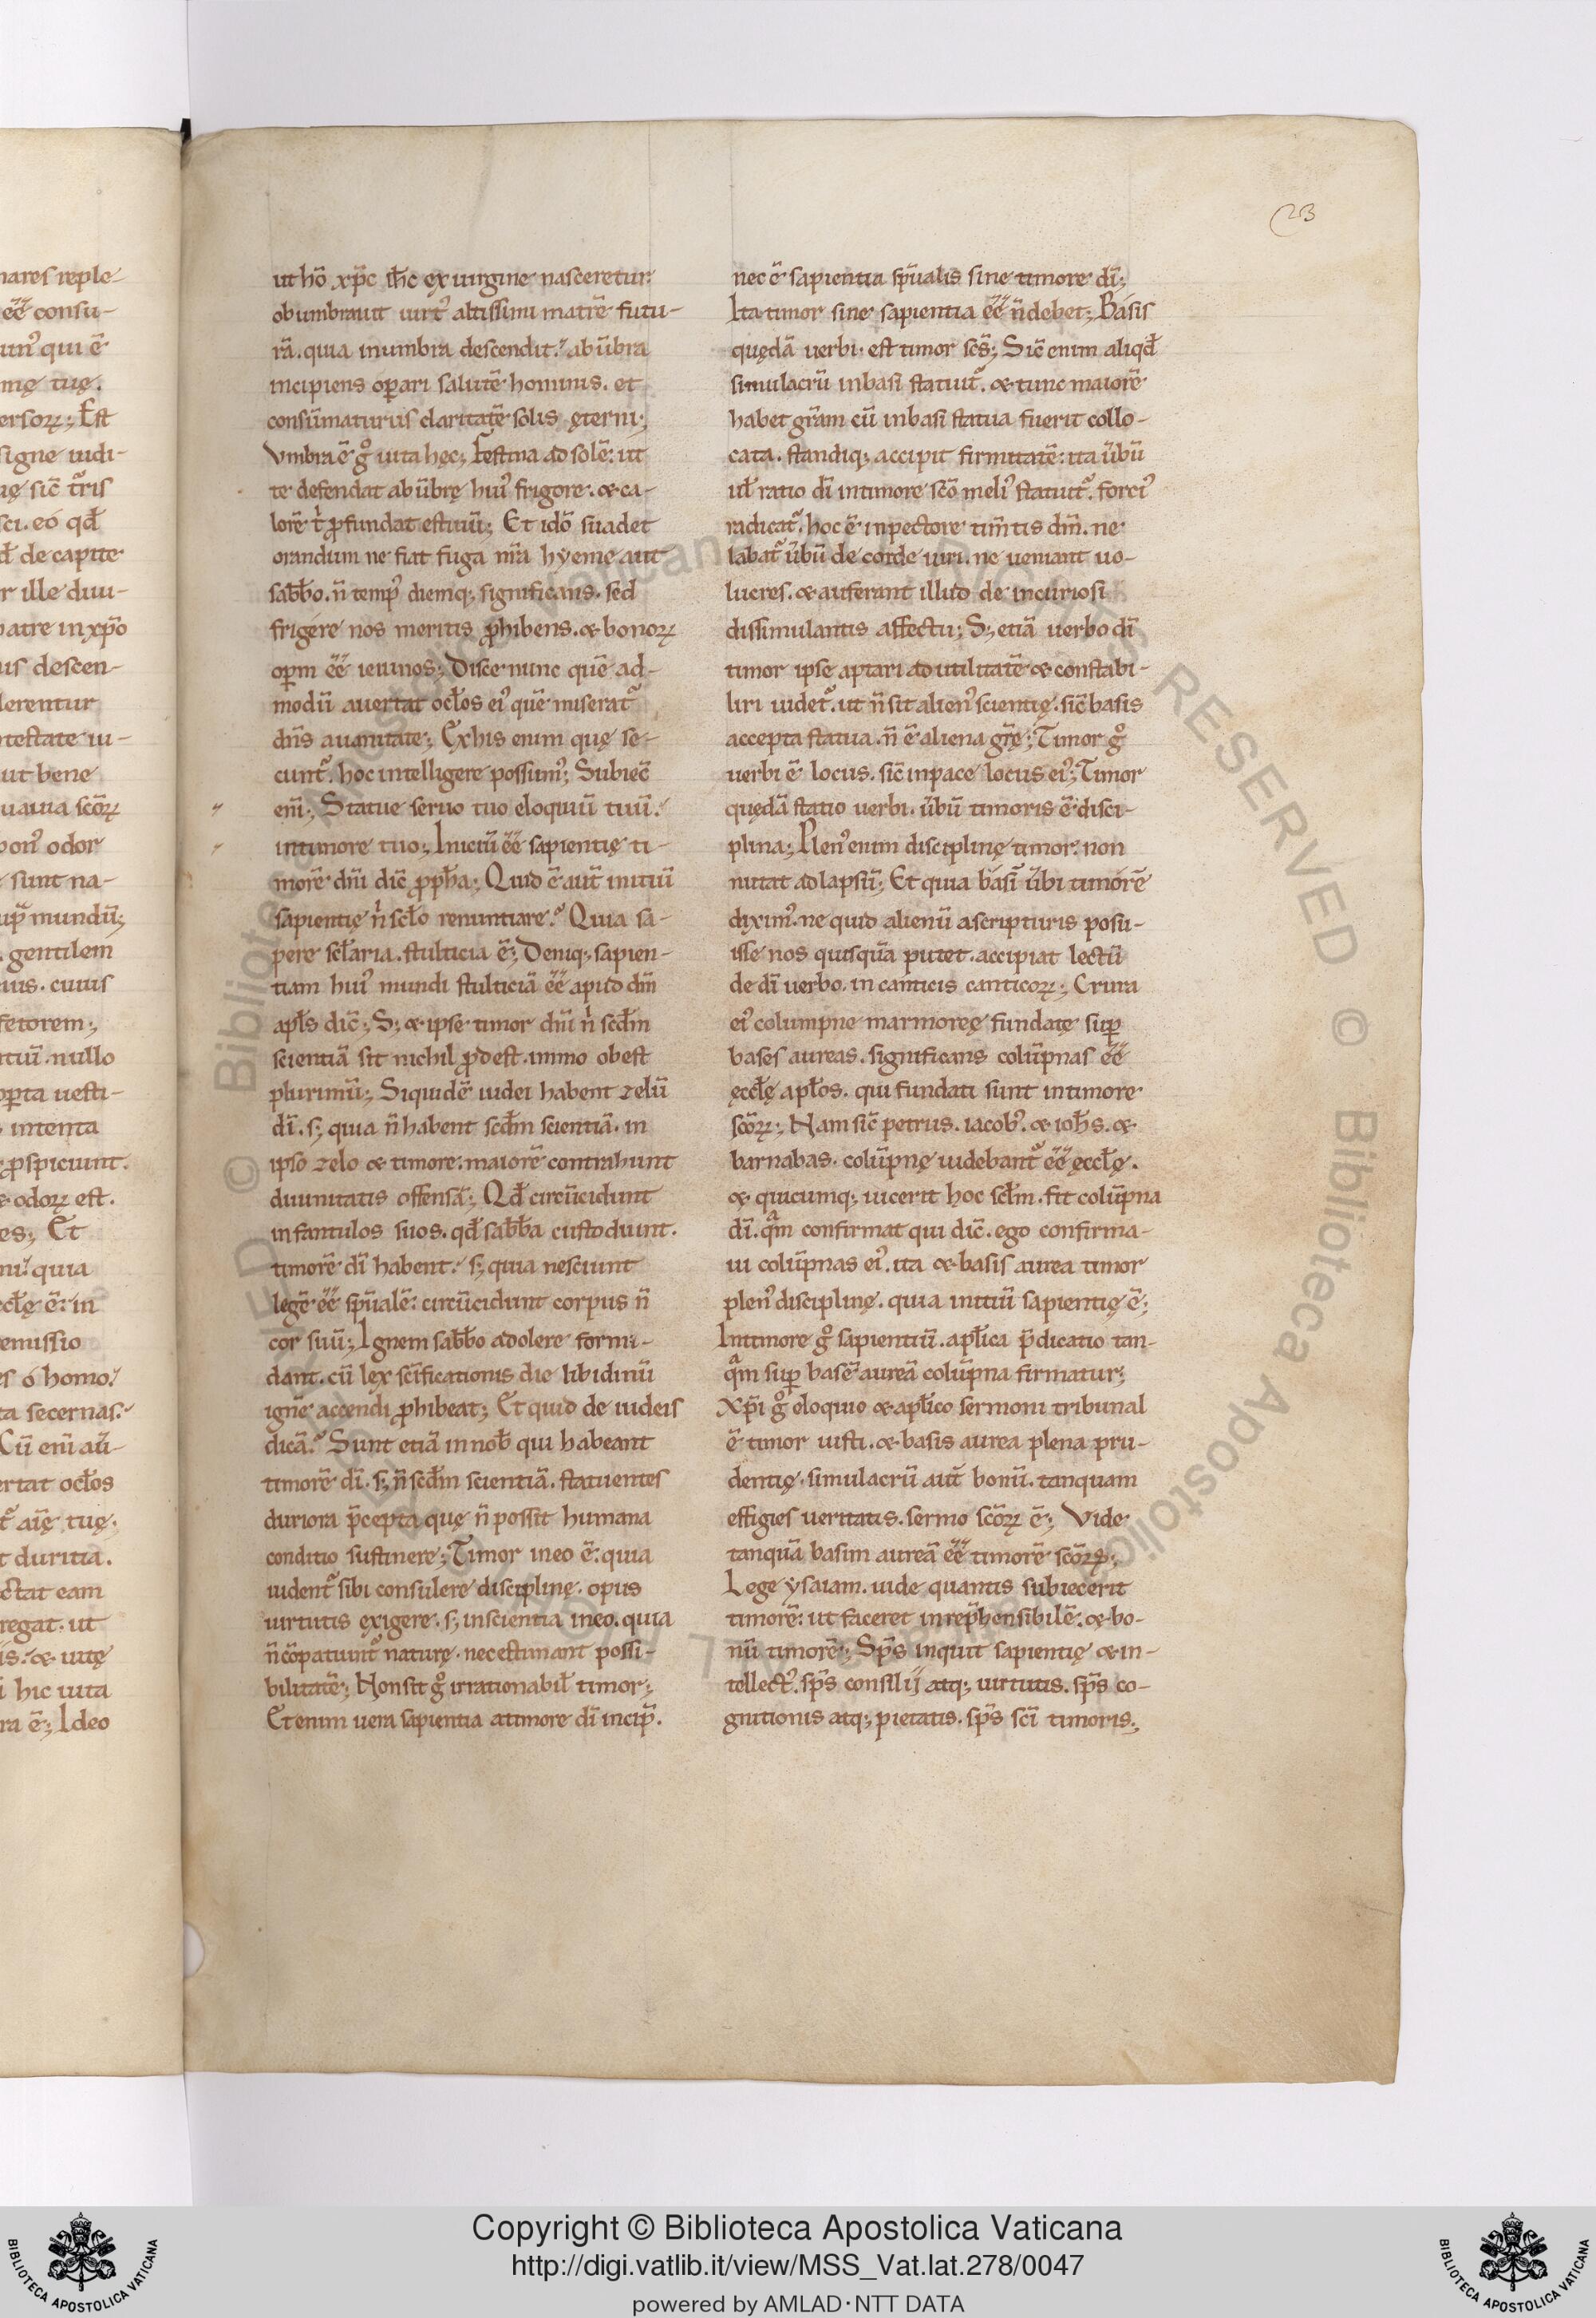 nares reple-
eē̄ consu-
un᾽ qui ē
mę tuę.
ersoꝝ; Est
signe iudi-
sic̄
sci. eo qđ
de capite
r ille diui-
patre in xp̄o
us descen-
lerentur
testate ui-
ut bene
uauia sc̄oꝝ
bon᾽ odor
sunt na-
mundū;
gentilem
uis. cuius
fetorem;
tuū. nullo
ꝑta uesti-
intenta
ꝓspiciunt.
odoꝝ est.
es; Et
quia
ccł̄ę ē: in
emissio
es ó homo?
ta secernas.
Cū eni᷈ au᷈-
ertat ocł̄os
aīę tuę.
t duritia.
ctat eam
regat. ut
is. & uitę
hic uita
ra ē; Ideo
23
ut hō xp̄c ih̄c ex uirgine nasceretur.
obumbrauit uirt᾽ altissimi matrē futu-
rā. quia inumbra descendit. abūbra
incipiens oꝑari salutē hominis. et
consūmaturus claritatē solis ęterni;
Vmbra ē gͦ uita hęc; Festina ad solē: ut
te defendat ab ūbrę hui᾽ frigore. & ca-
lorē t᷈ ꝓfundat estiuū; Et idō suadet
orandum ne fiat fuga nr̄a hyeme aut
sab̄b̄o. n̄ temp᾽ diemq; significans. sed
frigere nos meritis ꝓhibens. & bonoꝝ
oꝑm eē̄ ieiunos; Disce nunc quē ad-
modū auertat ocł̄os ei᾽ quē miserat᷈
dn̄s auanitate; Ex his enim quę se-
cunt᷈. hoc intelligere possum᾽; Subiec̄
eni᷈; Statue seruo tuo eloquiū tuū.
intimore tuo; Iniciū eē̄ sapientię ti-
morē dn̄i dic̄ ꝓph̄a; Quid ē aut̄ initiū
sapientię n᷈ scł̄o renuntiare? Quia sa-
pere scł̄aria. stulticia ē; Deniq; sapien-
tiam hui᾽ mundi stulticiā eē̄ apud dm̄
apł̄s dic̄; S; & ipse timor dn̄i n᷈ scđm
scientiā sit nichil ꝓdest. immo obest
plurimū; Siquidē iudei habent zelū
dī. s; quia n̄ habent scđm scientiā. in
ipso zelo & timore: maiorē contrahunt
diuinitatis offensā; Qđ circūcidunt
infantulos suos. qđ sab̄b̄a custodiunt.
timorē dī habent. s; quia nesciunt
legē eē̄ sp̄ualē: circūcidunt corpus n̄
cor suū; Ignem sab̄b̄o adolere formi-
dant. cū lex sc̄ificationis die libidinū
ignē accendi ꝓhibeat; Et quid de iudeis
dicā? Sunt etiā in nob̄ qui habeant
timorē dī. s; n̄ scđm scientiā. statuentes
duriora p̄cepta quę n̄ possit humana
conditio sustinere; Timor ineo ē: quia
uident᷈ sibi consulere disciplinę. opus
uirtutis exigere. s; inscientia ineo. quia
n̄ cōpatiunt᷈ naturę. nec estimant possi-
bilitatē; Non sit gͦ irrationabil̄ timor;
Etenim uera sapientia atimore dī incip̄.
nec ē sapientia sp̄ualis sine timore dī;
Ita timor sine sapientia eē̄ n̄ debet; Basis
quędā uerbi. est timor sc̄s; Sic̄ enim aliqđ
simulacrū inbasi statuit᷈. & tunc maiorē
habet gr̄am cū inbasi statua fuerit collo-
cata. standiq; accipit firmitatē: ita ūbū
ul̄ ratio dī intimore sc̄o meli᾽ statuit᷈. forci᾽
radicat᷈. hoc ē inpectore tim̄tis dm̄. ne
labat᷈ ūbū de corde uiri. ne ueniant uo-
lucres. & auferant illud de incuriosi
dissimulantis affectu; S; etiā uerbo dī
timor ipse aptari ad utilitatē & constabi-
liri uidet᷈. ut n̄ sit alien᾽ scientię. sic̄ basis
accepta statua. n̄ ē aliena gr̄ę; Timor gͦ
uerbi ē locus. sic̄ inpace locus ei᾽; Timor
quędā statio uerbi. ūbū timoris ē disci-
plina; Plen᾽ enim disciplinę timor. non
nutat ad lapsū; Et quia basi᷈ ūbi timorē
dixim᾽. ne quid alienū ascripturis posu-
isse nos quisquā putet. accipiat lectū
de dī uerbo. in canticis canticoꝝ; Crura
ei᾽ columpne marmoreę fundatę suꝑ
bases aureas. significans colūpnas eē̄
ęccł̄ę apł̄os. qui fundati sunt intimore
sc̄oꝝ; Nam sic̄ petrus. iacob᾽. & ioh̄s. &
barnabas. colūpnę uidebant᷈ eē̄ ęccł̄ę.
& quicumq; uicerit hoc scł̄m. fit colūpna
dī. qͣm confirmat qui dic̄. ego confirma-
ui colūpnas ei᾽. ita & basis aurea timor
plen᾽ disciplinę. quia initiū sapientię ē;
Intimore gͦ sapientiū. apł̄ica p̄dicatio tan-
qͣm suꝑ basē aureā colūpna firmatur;
Xp̄i gͦ eloquio & apł̄ico sermoni tribunal
ē timor iusti. & basis aurea plena pru-
dentię. simulacrū aut̄ bonū. tanquam
effigies ueritatis. sermo sc̄oꝝ ē; Vide
tanquā basim aureā eē̄ timorē sc̄oꝝ;
Lege ysaiam. uide quantis subiecerit
timorē: ut faceret inrep̄hensibilē. & bo-
nū timorē; Sp̄s inquit sapientię & in-
tellect᾽. sp̄s consilij atq; uirtutis. sp̄s co-
gnitionis atq; pietatis. sp̄s sc̄i timoris;
© Biblioteca Apostolica Vaticana
RIGHTS RESERVED © Biblioteca Apostolica
BIBLIOTECA APOSTOLICA VATICANA
Copyright © Biblioteca Apostolica Vaticana
http://digi.vatlib.it/view/MSS_Vat.lat.278/0047
powered by AMLAD·NTT DATA
BIBLIOTECA APOSTOLICA VATICANA